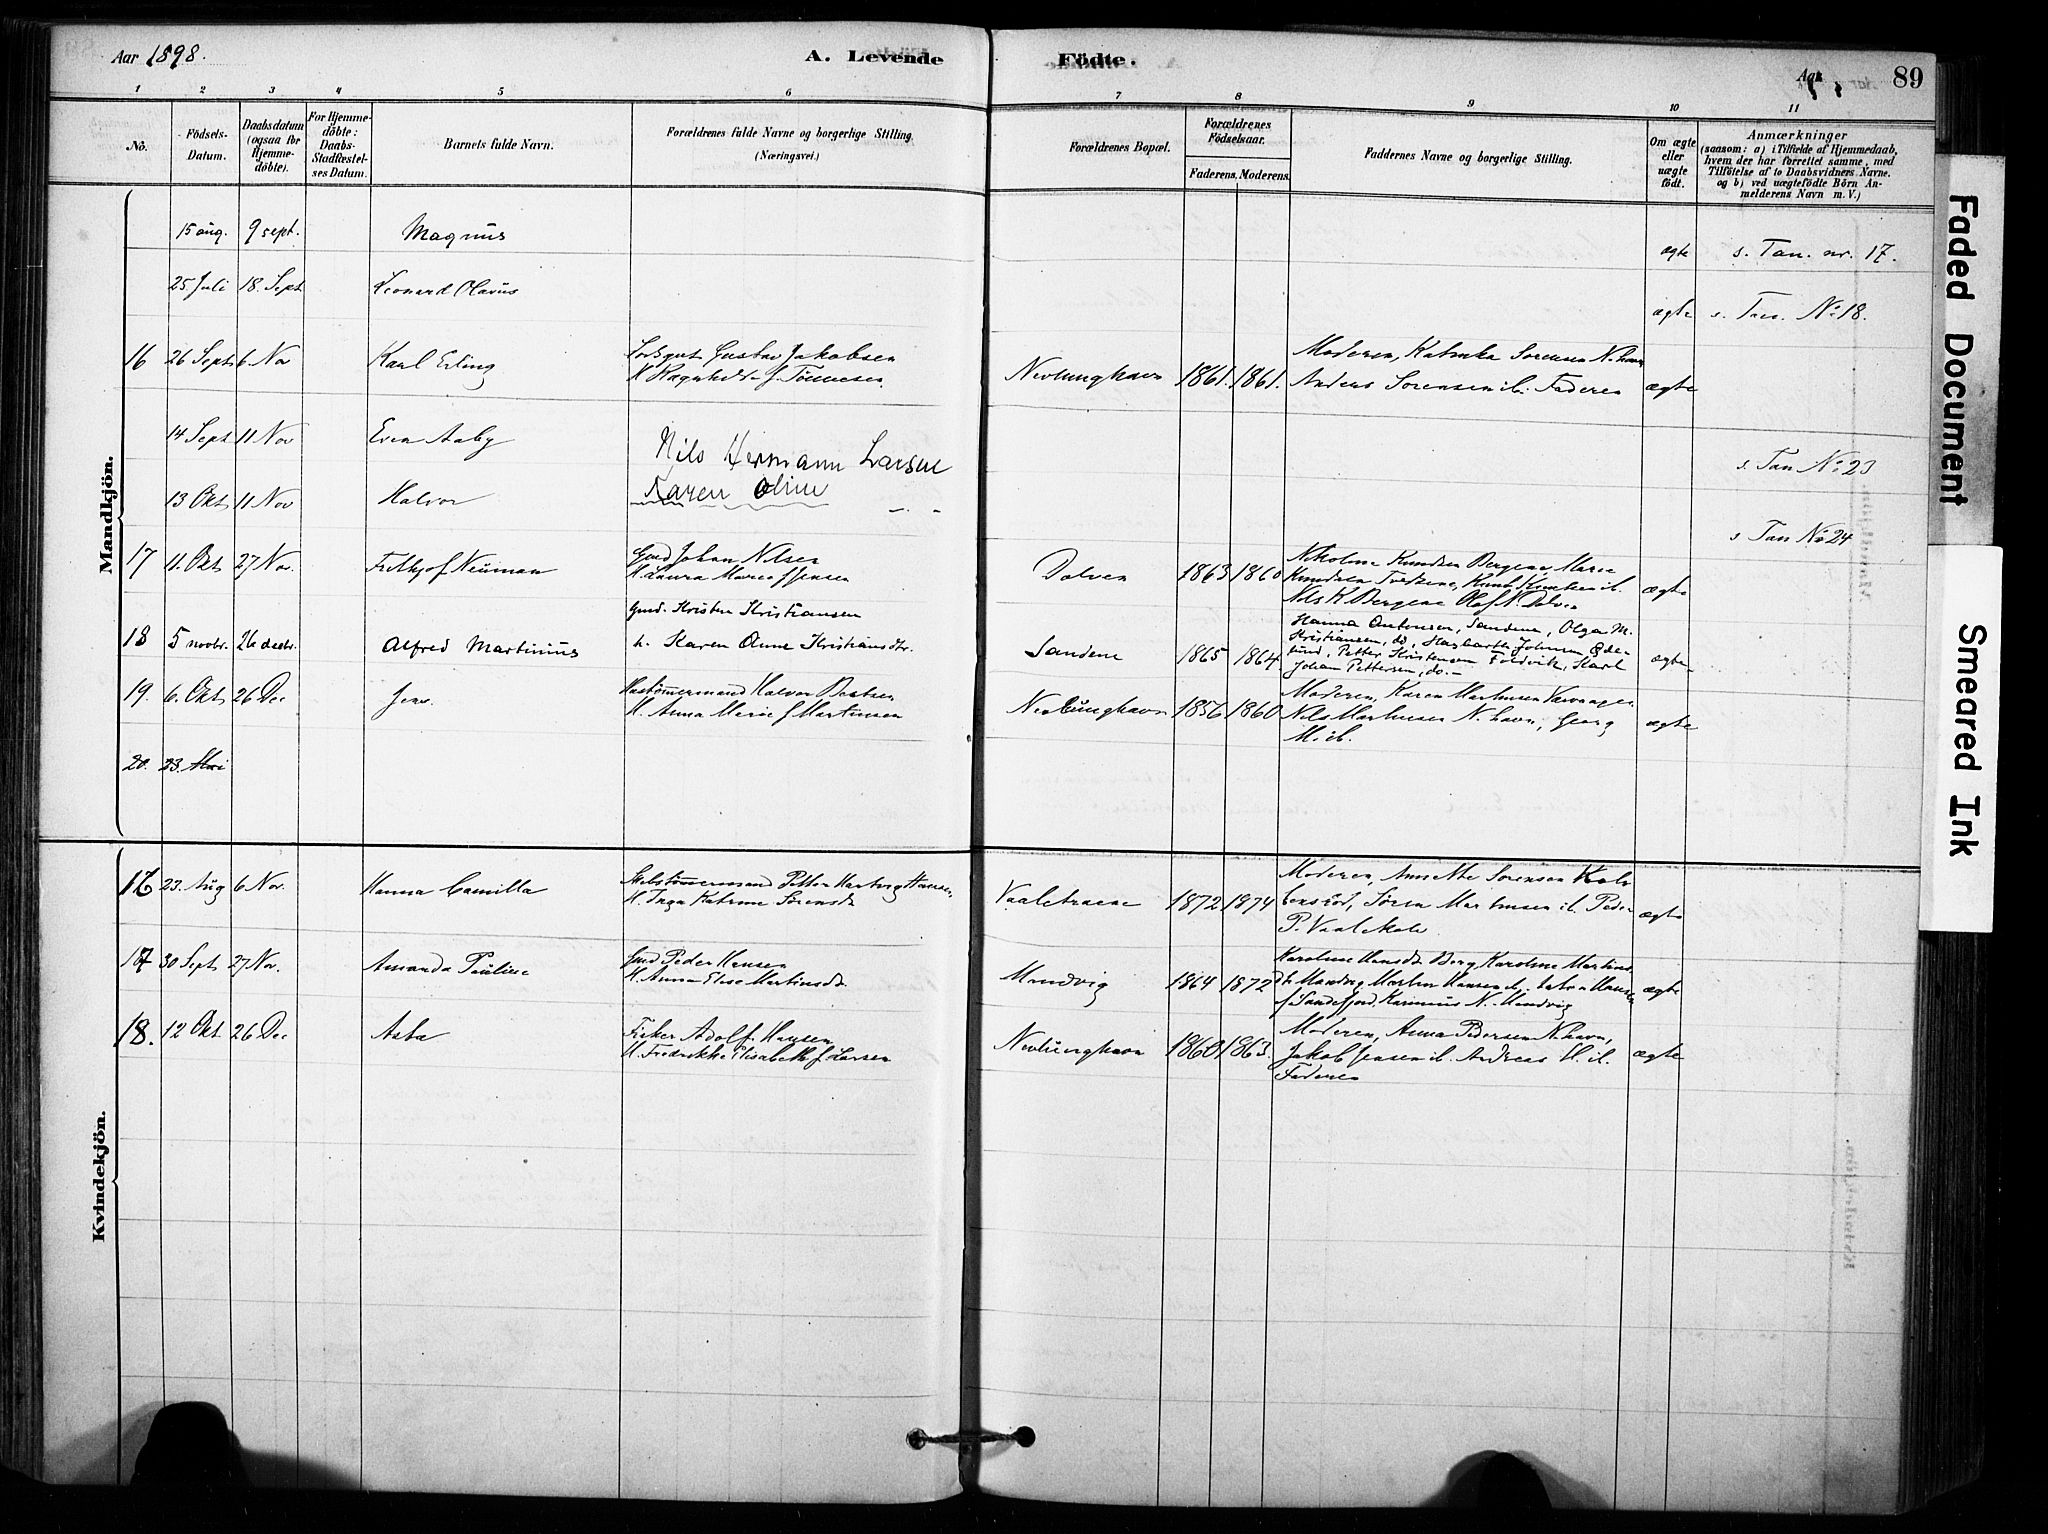 Aar 1898.
A. Levende Födte.
Aar
89
1 2 3 4 5 6 7 8 9 10 11
No.
Födsels-
Datum.
Daabsdatum
(ogsaa for
Hjemme-
döbte).
For Hjemme-
döbte:
Daabs-
Stadfæstel-
ses Datum.
Barnets fulde Navn.
Forældrenes fulde Navne og borgerlige Stilling.
(Næringsvei.)
Forældrenes Bopæl.
Forældrenes
Födselsaar.
Faderens. Moderens.
Faddernes Navne og borgerlige Stilling.
Om ægte
eller
uægte
födt.
Anmærkninger
(saasom: a) i Tilfælde af Hjemmedaab,
hvem der har forrettet samme, med
Tilföielse af to Daabsvidners Navne.
og b) ved uægtefödte Börn An-
melderens Navn m. V.)
Mandkjön.
15 aug. 9 sept. Magnus ægte s. Tan. nr. 17.
25 Juli 18. Sept Leonard Olavus ægte s. Tan. No 18.
16 26 Sept 6 Nov Karl Erling
Gustav Jakobsen
H. Ragnhild f. Tönnesen
Nevlunghavn 1861. 1861.
Moderen, Katrika Sorensen N.havn
Anders Sorensen ib. Faderen
ægte
14 Sept 11 Nov Even Aaby
Nils Hermann Larsen
s. Tan No 23
13 Okt 11 Nov Halvor
Karen Oline
s Tan No 24
17 11. Okt 27 Nov. Frithjof Neuman
Gmd Johan Nilsen
H. Laura Marie f Jensen
Dolven 1863 1860
Nikoline Knudsen Bergene, Marie
Knudsen Tvedtene, Knut Knutsen ib.
Nils K Bergene Olaf N. Dolven
ægte
18 5 novbr. 26 decbr. Alfred Martinius
Gmd. Kristen Kristiansen
h. Karen Anne Kristiansdtr.
Sandene 1865 1864
Hanna Antonsen, Sandene, Olga M.
Kristiansen, do, Hagbarth Johnsen Öde-
lund, Petter Kristensen Foldvik, Karl
Johan Pettersen, do.-
ægte
19. 6. Okt 26 Dec Jens.
Halvor Bentsen
H. Anna Marie f Martinsen
Nevlunghavn 1856 1860
Moderen, Karen Marthinsen
Nils Marthinsen N.havn, Georg
M. ib.
ægte
20. 23. Mai
Kvindekjön.
16 23. Aug 6 Nov. Hanna Camilla
Petter Hansen,
H. Inga Katrine Sörensdt
1872 1874
Moderen, Annette Sorensen
Sören Marthinsen ib. Peder
P.
ægte
17 30 Sept 27 Nov. Amanda Pauline
Gmd Peder Hansen
H. Anna Elise Martinsdt
Mundvig 1864 1872
Karoline Hansdt Berg Karoline Martins
Martin Hansen ib.
f Sandefjord,
ægte
18. 12 Okt 26 Dec Asta
Fisker Adolf Hansen
H. Fredrikke Elisabeth f Larsen
Nevlunghavn 1860 1863.
Moderen, Anna Pedersen N.havn,
Jakob Jensen ib. Andreas H. ib.
Faderen
ægte
Faded Document
Smeared Ink